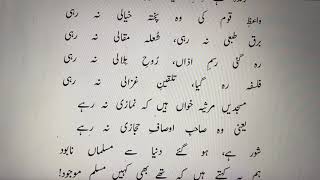 واعظِ قوم کی وہ پختہ خیالی نہ رہی
برق طبعی نہ رہی، شعلہ مقالی نہ رہی
رہ گئی رسمِ اذاں، روحِ بلالی نہ رہی
فلسفہ رہ گیا، تلقینِ غزالی نہ رہی
مسجدیں مرثیہ خواں ہیں کہ نمازی نہ رہے
یعنی وہ صاحبِ اوصافِ حجازی نہ رہے
شور ہے، ہو گئے دنیا سے مسلماں نابود
ہم یہ کہتے ہیں کہ تھے بھی کہیں مسلم موجود!